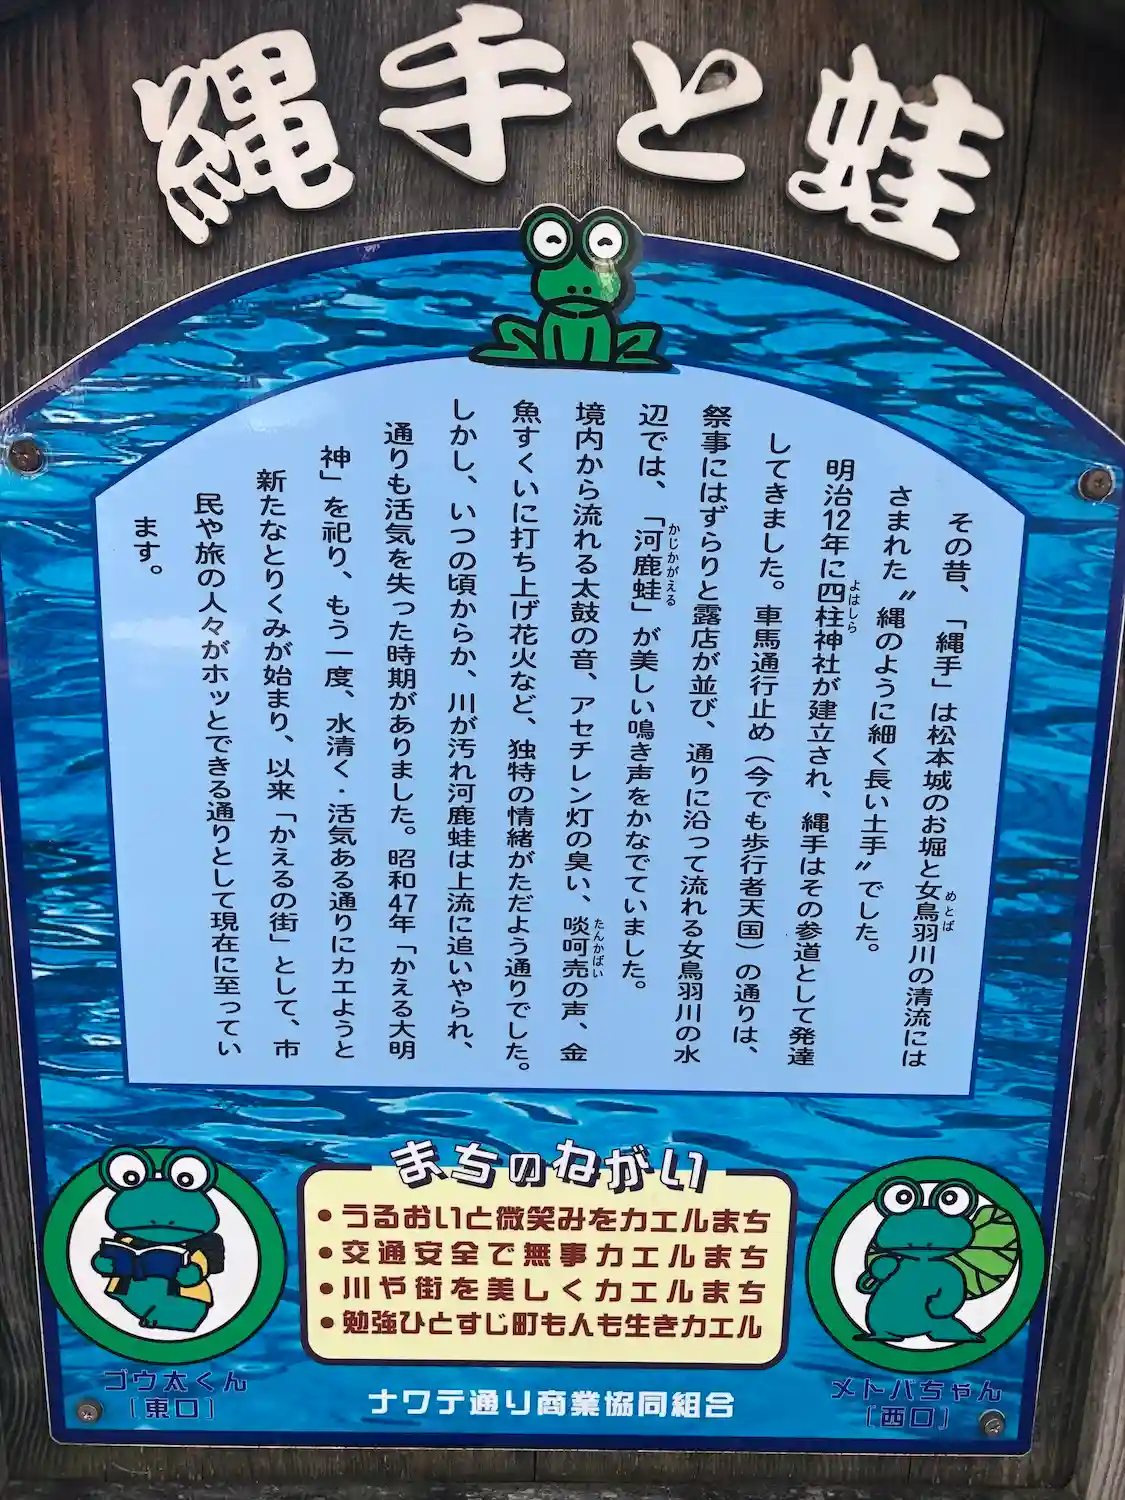 縄手と蛙
その昔、「縄手」は松本城のお堀と女鳥羽川の清流には
めとば
さまれた〝縄のように細く長い土手〟でした。
明治12年に四柱神社が建立され、縄手はその参道として発達
よはしら
してきました。車馬通行止め（今でも歩行者天国）の通りは、
祭事にはずらりと露店が並び、通りに沿って流れる女鳥羽川の水
辺では、「河鹿蛙」が美しい鳴き声をかなでていました。
かじかがえる
境内から流れる太鼓の音、アセチレン灯の臭い、啖呵売の声、金
たんかばい
魚すくいに打ち上げ花火など、独特の情緒がただよう通りでした。
しかし、いつの頃からか、川が汚れ河鹿蛙は上流に追いやられ、
通りも活気を失った時期がありました。昭和47年「かえる大明
神」を祀り、もう一度、水清く・活気ある通りにカエようと
新たなとりくみが始まり、以来「かえるの街」として、市
民や旅の人々がホッとできる通りとして現在に至ってい
ます。
まちのねがい
•うるおいと微笑みをカエルまち
•交通安全で無事カエルまち
•川や街を美しくカエルまち
•勉強ひとすじ町も人も生きカエル
ゴウ太くん
［東口］
ナワテ通り商業協同組合
メトバちゃん
［西口］